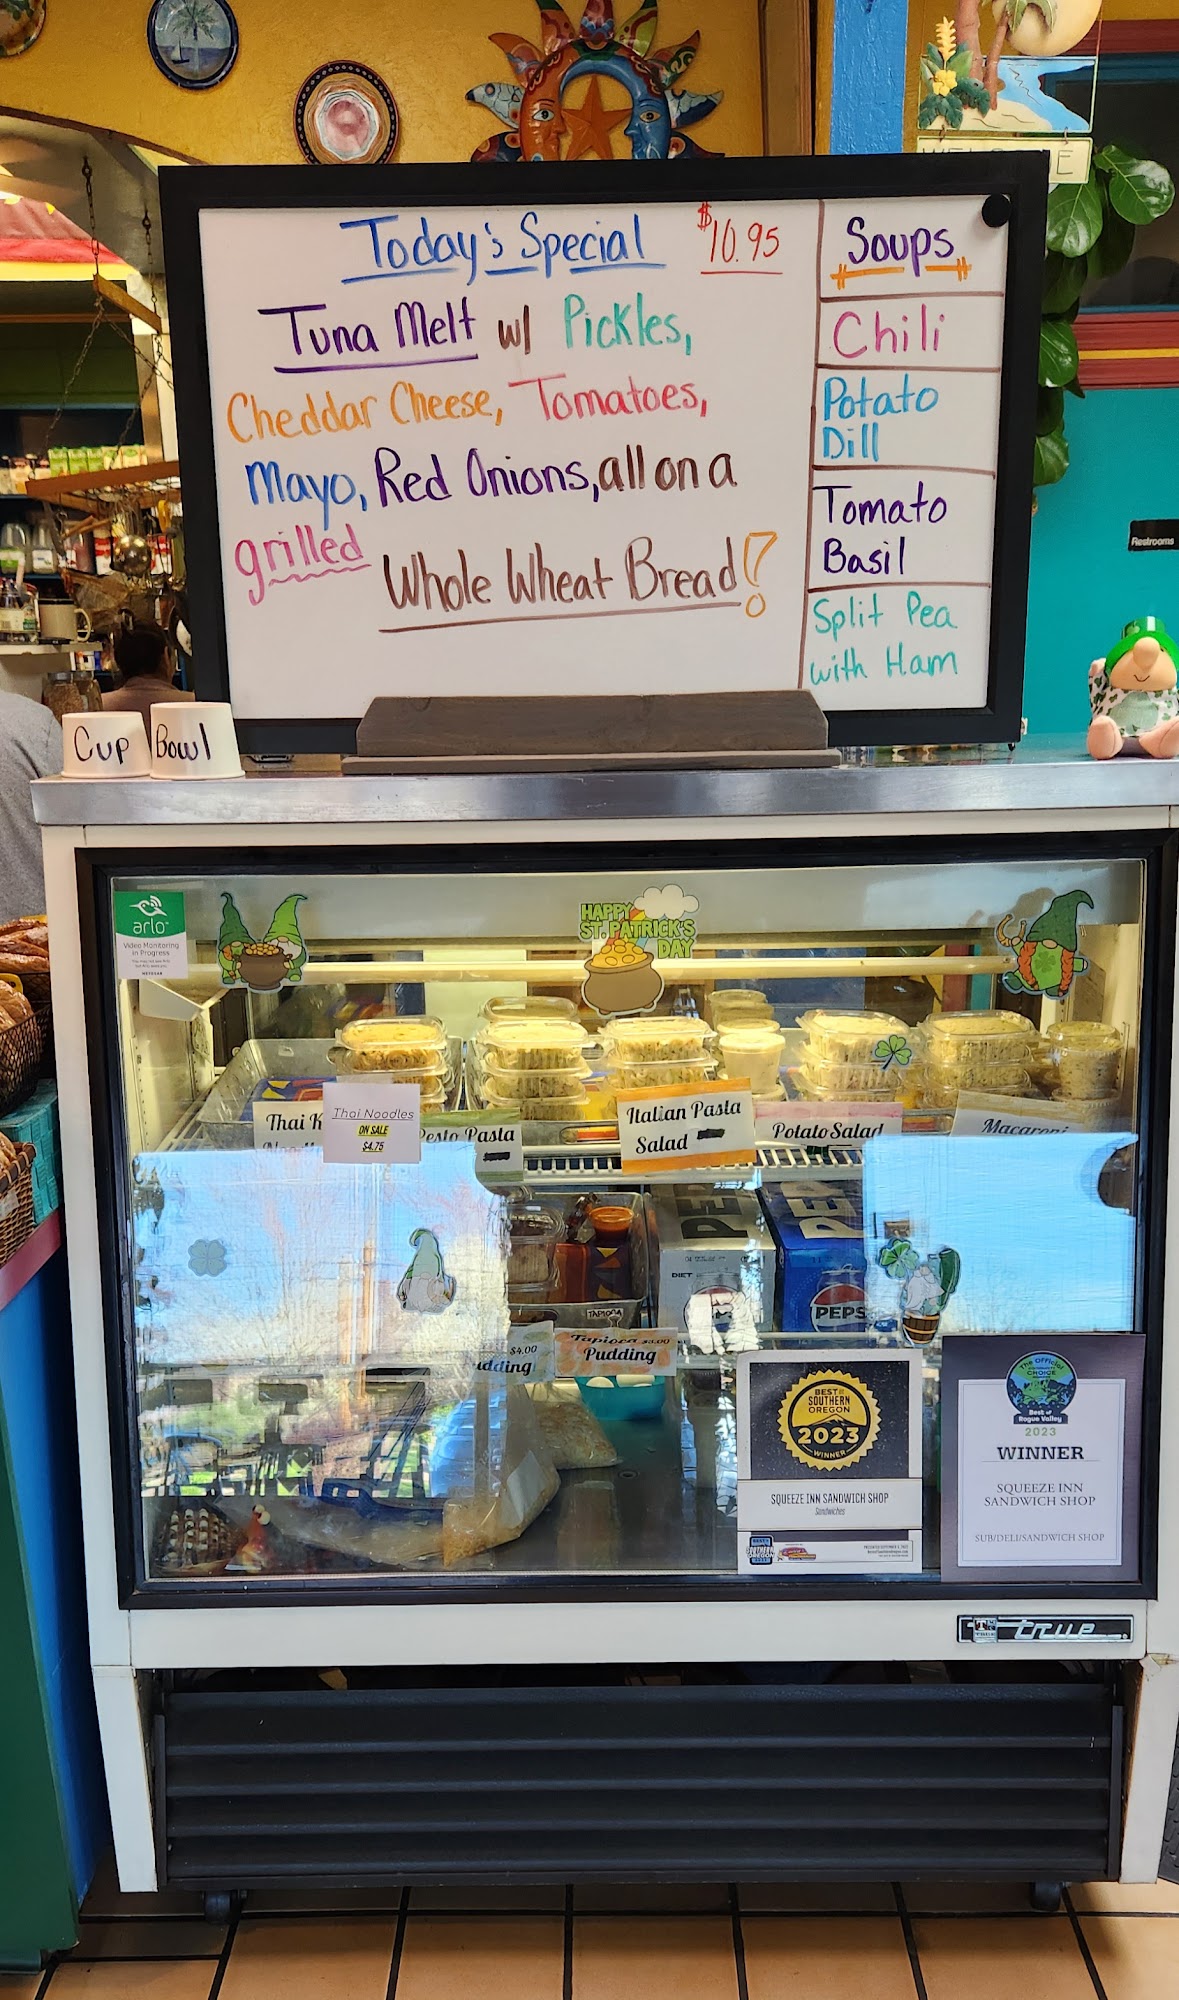 WELCOME
Today's Special $10.95
Tuna Melt w/ Pickles,
Cheddar Cheese, Tomatoes,
Mayo, Red Onions, all on a
grilled Whole Wheat Bread!
Soups
Chili
Potato
Dill
Tomato
Basil
Split Pea
with Ham
Restrooms
Cup
Bowl
arlo
Video Monitoring
in Progress
NETGEAR
HAPPY
ST. PATRICK'S
DAY
Thai K
Thai Noodles
ON SALE
$4.75
Pesto Pasta
Italian Pasta
Salad
Potato Salad
Macaroni
DIET
PEPS
TAPIOCA
$4.00
udding
Tapioca $3.00
Pudding
BEST OF
SOUTHERN
OREGON
2023
WINNER
SQUEEZE INN SANDWICH SHOP
Sandwiches
The Official
CHOICE
Best of
Rogue Valley
2023
WINNER
SQUEEZE INN
SANDWICH SHOP
SUB/DELI/SANDWICH SHOP
true